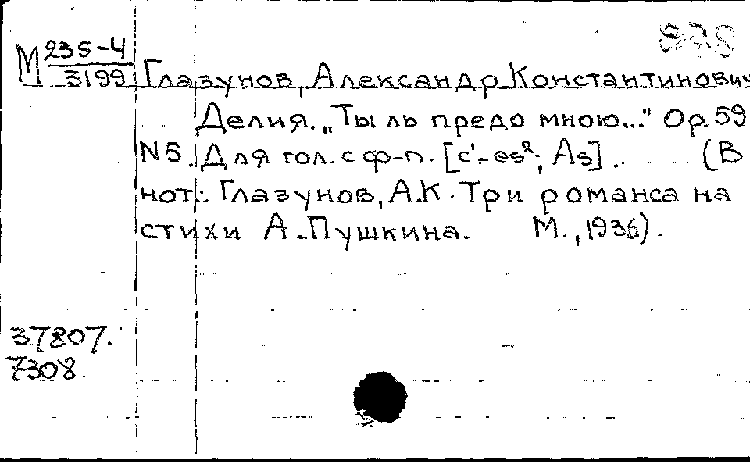 М 235-4
3199
Глазунов, Александр Константинович
Делия. „Ты ль предо мною..." Ор. 59
N5. Для гол. с ф-п. [c'-es²; As]. (В
нот.: Глазунов, А.К. Три романса на
стихи А. Пушкина. М., 1936).
37807.
7308